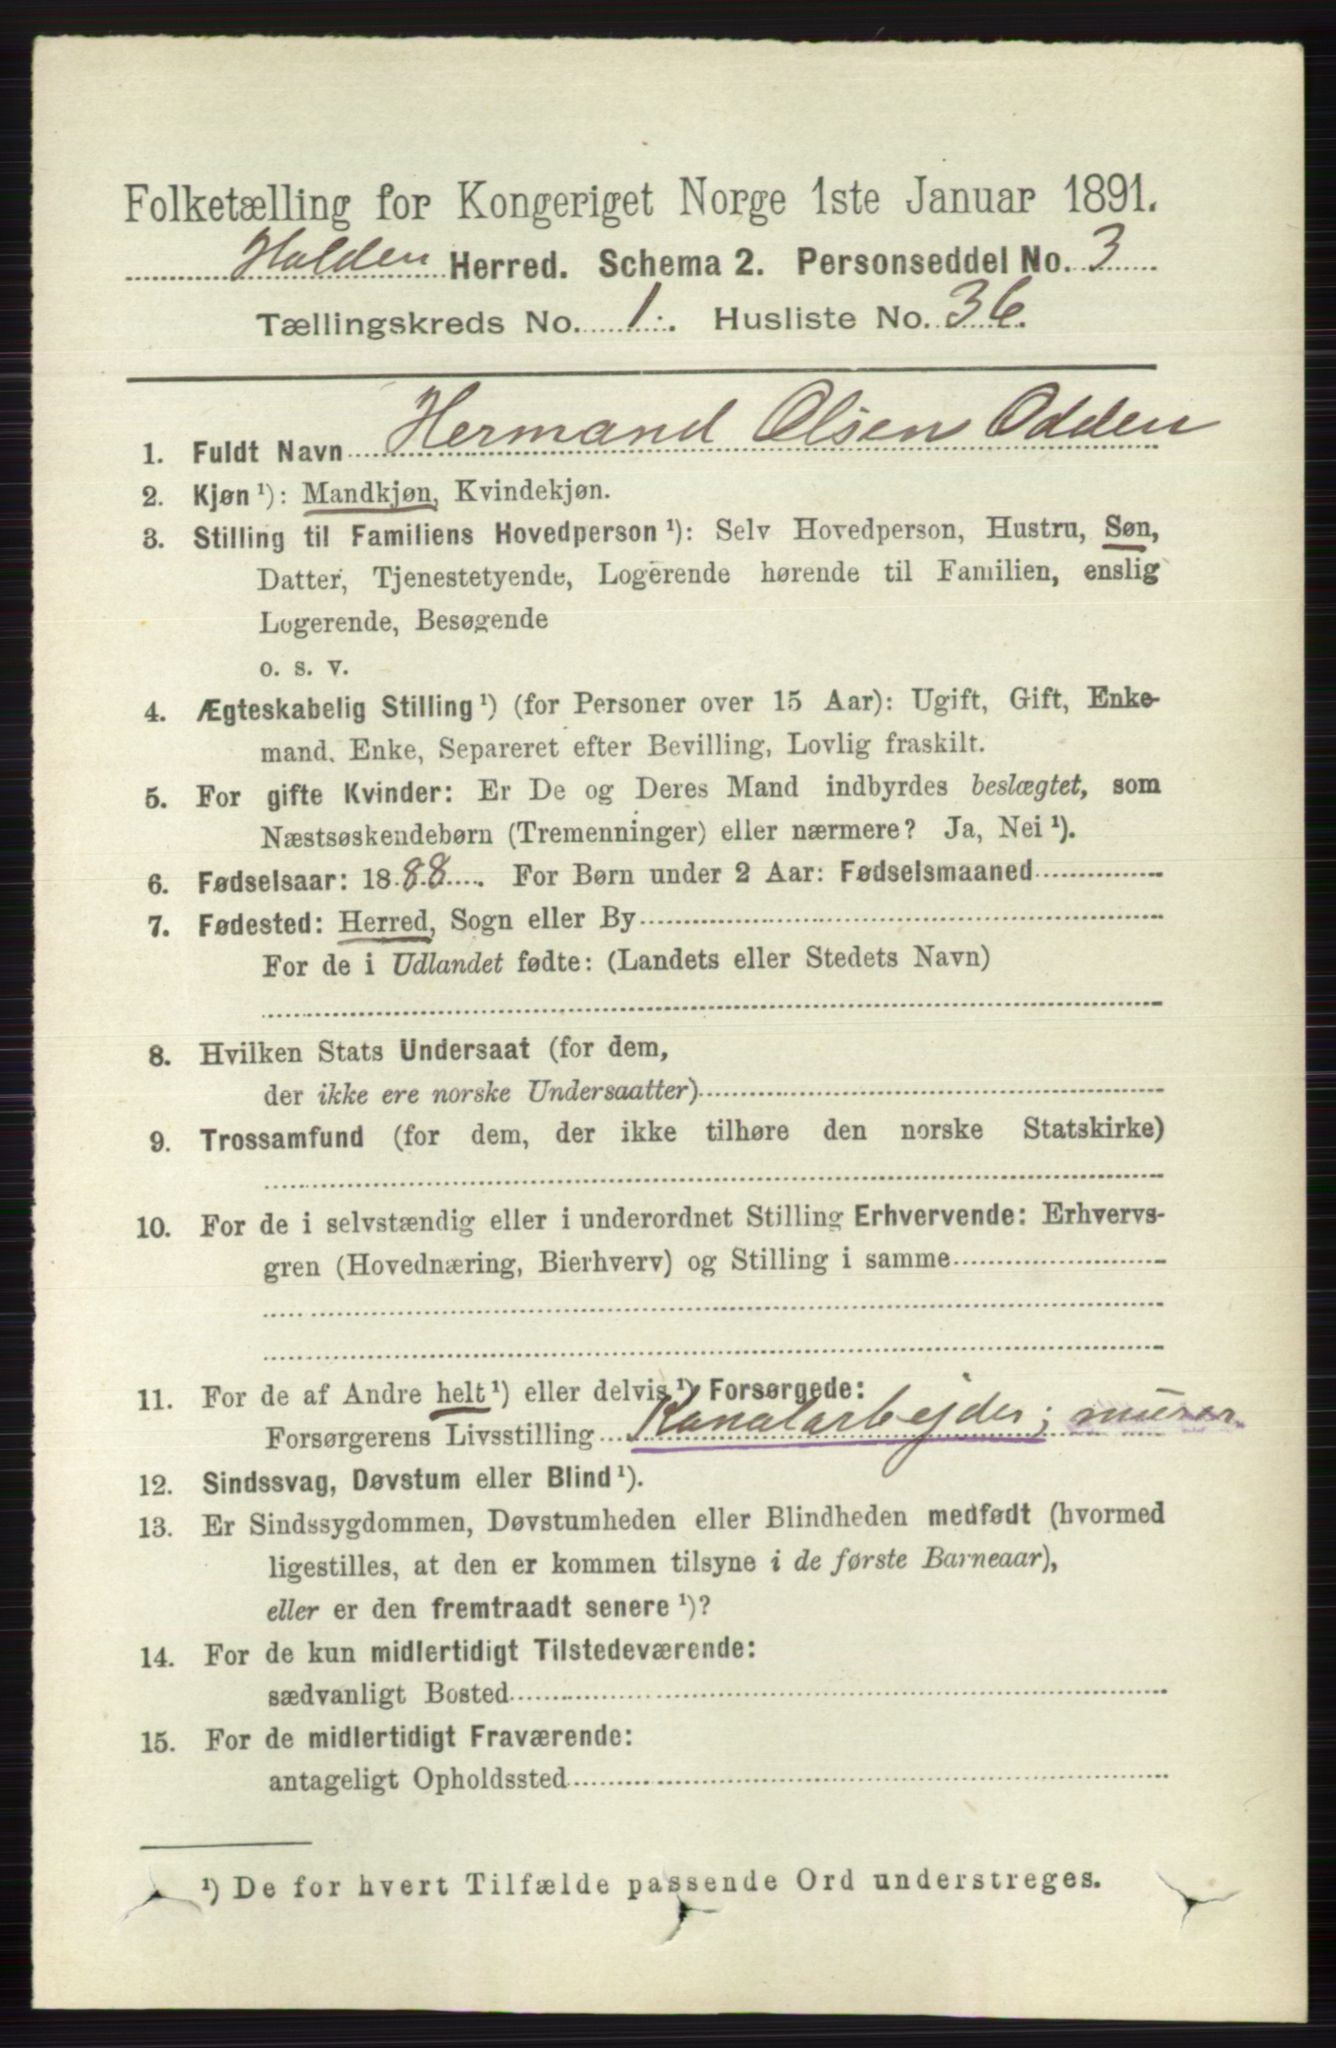 Folketælling for Kongeriget Norge 1ste Januar 1891.
Holden Herred. Schema 2. Personseddel No. 3
Tællingskreds No. 1. Husliste No. 36.
1. Fuldt Navn Hermand Olsen Odden
2. Kjøn ¹): Mandkjøn, Kvindekjøn.
3. Stilling til Familiens Hovedperson ¹): Selv Hovedperson, Hustru, Søn,
Datter, Tjenestetyende, Logerende hørende til Familien, enslig
Logerende, Besøgende
o. s. v.
4. Ægteskabelig Stilling ¹) (for Personer over 15 Aar): Ugift, Gift, Enke-
mand, Enke, Separeret efter Bevilling, Lovlig fraskilt.
5. For gifte Kvinder: Er De og Deres Mand indbyrdes beslægtet, som
Næstsøskendebørn (Tremenninger) eller nærmere? Ja, Nei ¹).
6. Fødselsaar: 1888. For Børn under 2 Aar: Fødselsmaaned
7. Fødested: Herred, Sogn eller By
For de i Udlandet fødte: (Landets eller Stedets Navn)
8. Hvilken Stats Undersaat (for dem,
der ikke ere norske Undersaatter)
9. Trossamfund (for dem, der ikke tilhøre den norske Statskirke)
10. For de i selvstændig eller i underordnet Stilling Erhvervende: Erhvervs-
gren (Hovednæring, Bierhverv) og Stilling i samme
11. For de af Andre helt ¹) eller delvis ¹) Forsørgede:
Forsørgerens Livsstilling Kanalarbejder; murer.
12. Sindssvag, Døvstum eller Blind ¹).
13. Er Sindssygdommen, Døvstumheden eller Blindheden medfødt (hvormed
ligestilles, at den er kommen tilsyne i de første Barneaar),
eller er den fremtraadt senere ¹)?
14. For de kun midlertidigt Tilstedeværende:
sædvanligt Bosted
15. For de midlertidigt Fraværende:
antageligt Opholdssted
¹) De for hvert Tilfælde passende Ord understreges.